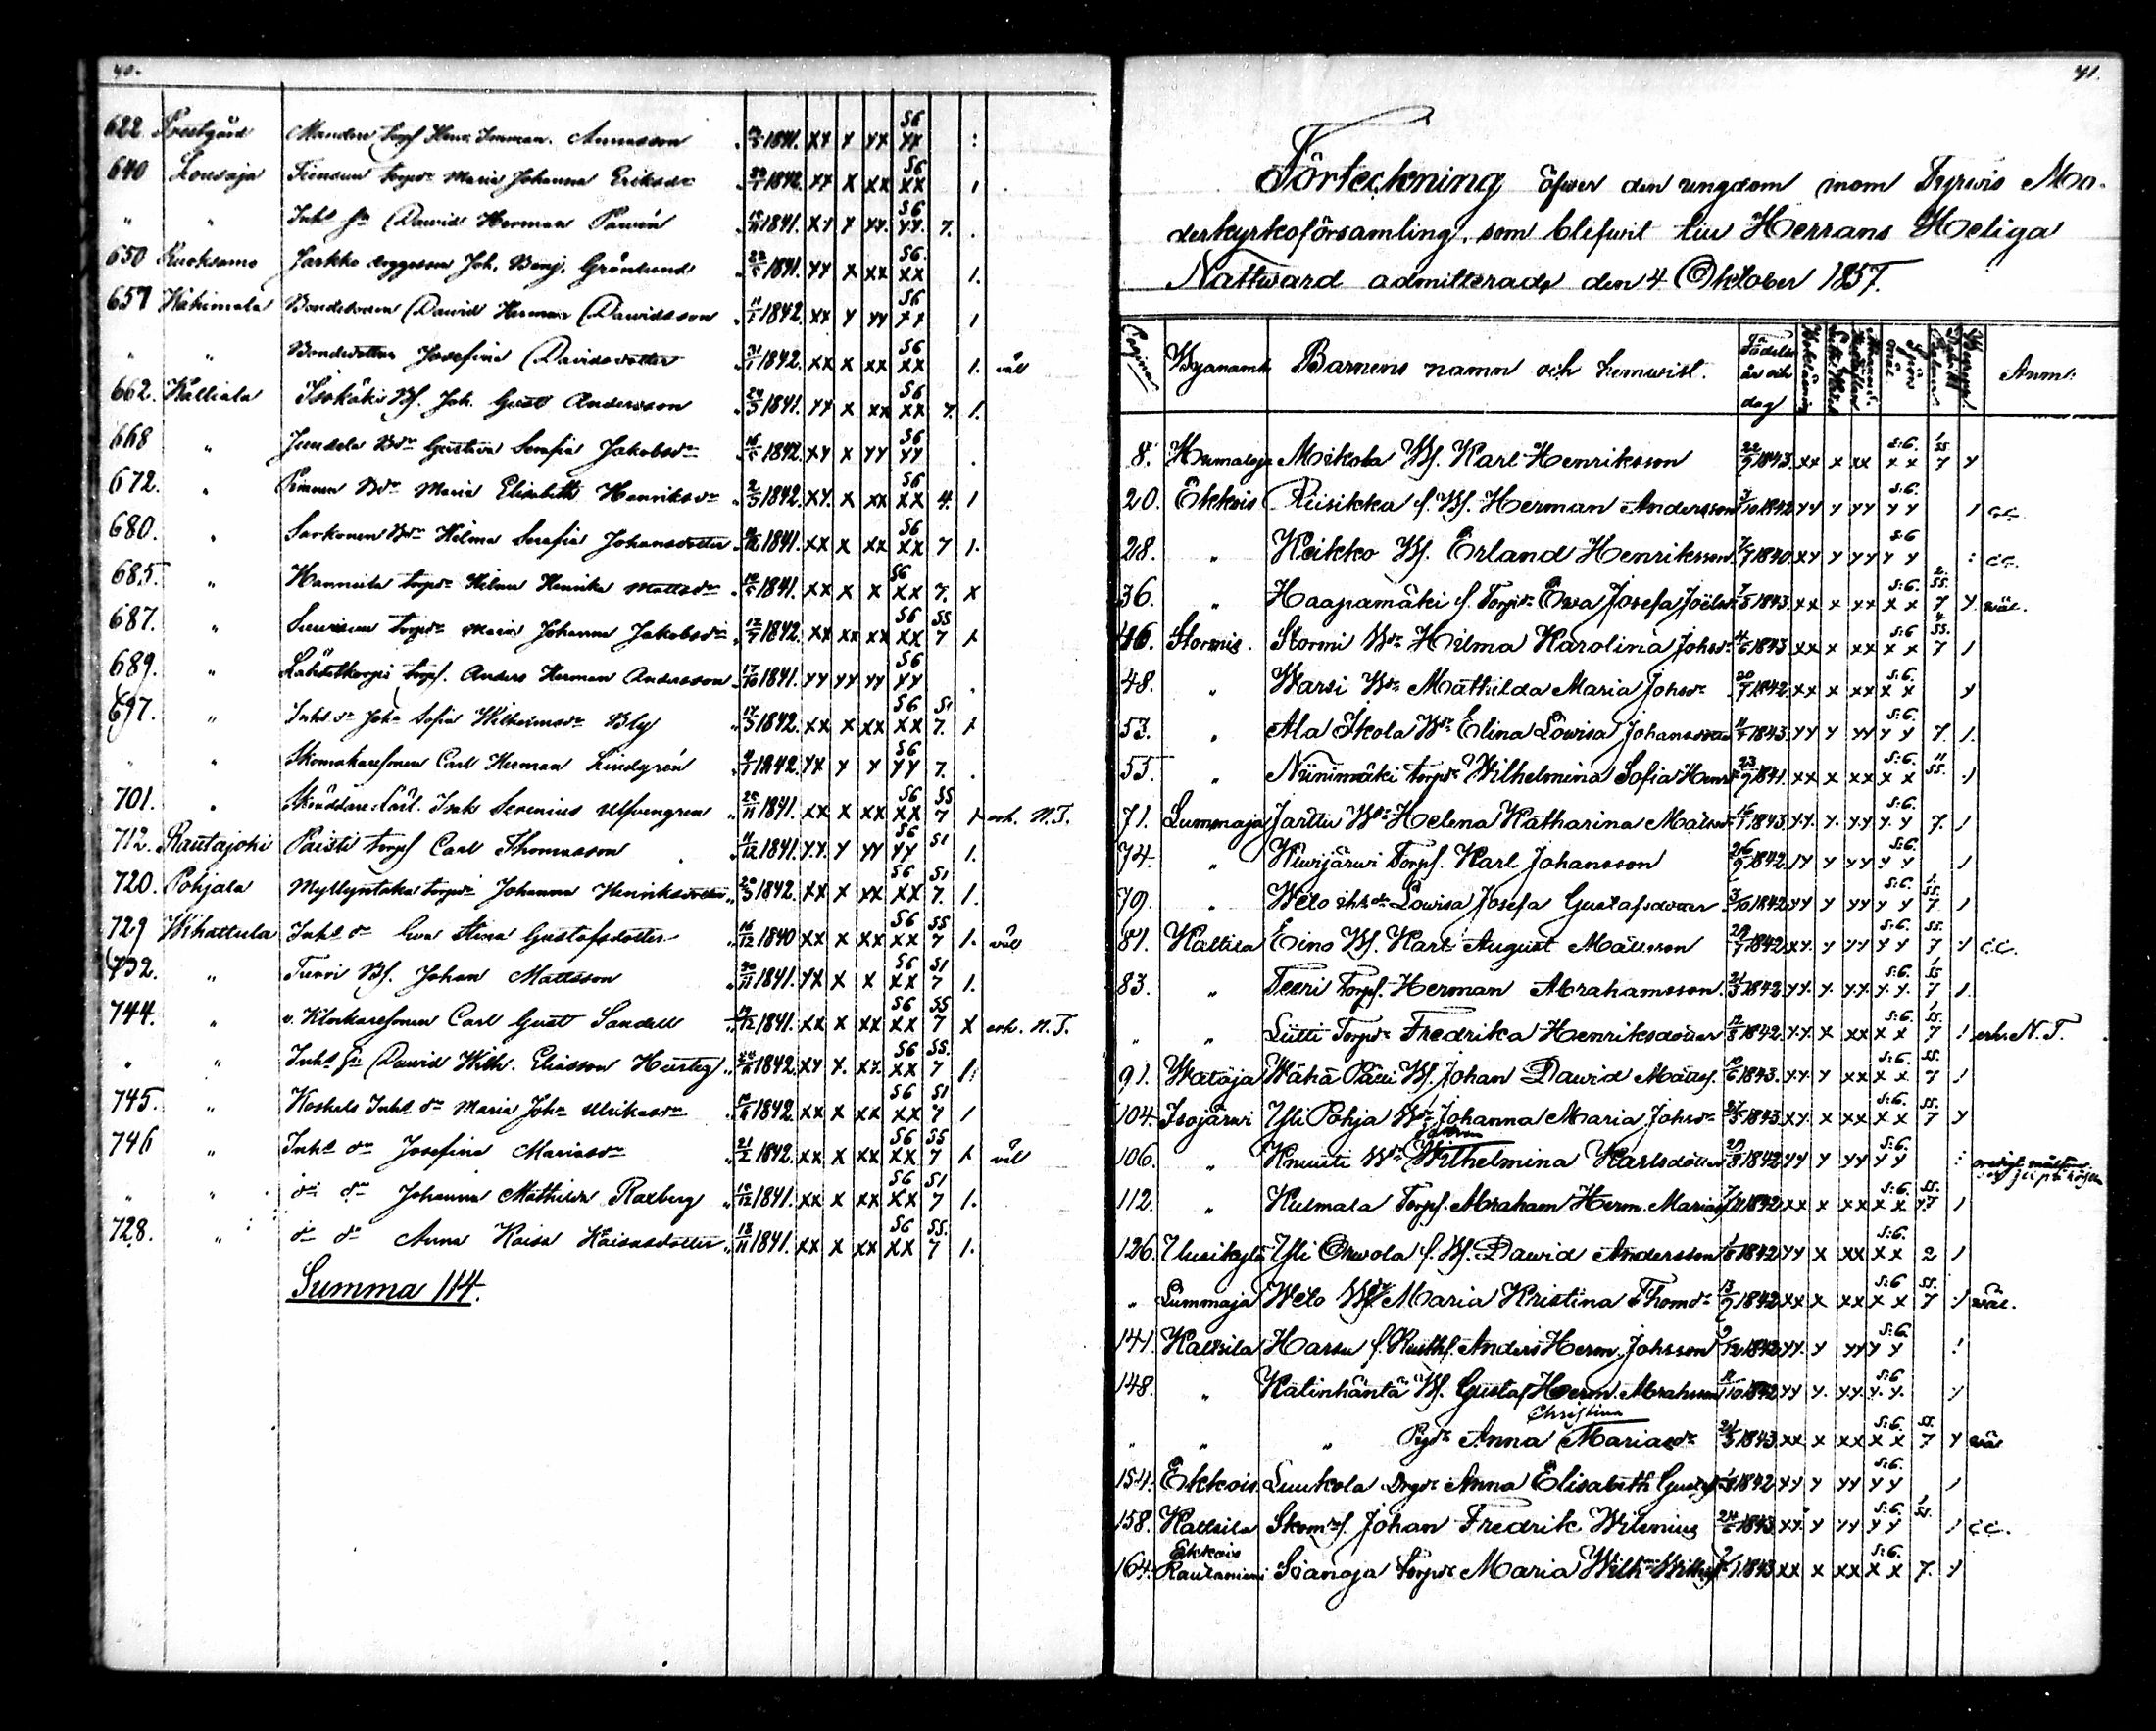 40.
622. Prestgård Mandere Torpf Henr. Immean. Annasson 1841. xx x xx S6 xx
640 Lousaja Torpdr Maria Johanna Eriksdr 1842. xx x xx S6 xx 1
" " Inhs sn David Herman 1841. xx x xx S6 xx 7.
650 Ruoksamo Jarkko Joh. Benj. Grönlund 22/5 1841. xx x xx S6 xx 1.
657 Häkimala Bondesonen David Herman Davidsson 11/1 1842. xx x xx S6 xx 1
" " Bondedottern Josefina Davidsdotter 31/1 1842. xx x xx S6 xx 1. väl
662. Kalliala Isokäki Bf. Joh. Gust Andersson 24/3 1841. xx x xx S6 xx 7. 1.
668 " Jundela Bdr Gustava Serafia Jakobsdr 16/5 1842. xx x xx S6 xx
672. " Bdr Maria Elisabeth Henriksdr 2/3 1842. xx. x xx S6 xx 4. 1
680. " Sarkonen Bdr Hilma Serafia Johansdotter 1841. xx x xx S6 xx 7 1.
685. " Hannula torpdr Hilma Henrika Mattsdr 1841. xx x x S6 xx 7. x
687. " torpdr Maria Johanna Jakobsdr 12/9 1842. xx xx xx S6 xx SS 7 1
689. " torpf. Anders Herman Andersson 17/10 1841. xx xx xx S6 xx
697. " Inhs dr Joha Sofia Wilhelmsdr Bly 17/3 1842. xx x xx S6 xx S1 7. 1
" " Skomakaresonen Carl Herman Lindgrén 1842 xx x x S6 xx 7.
701. " Skräddare Isak Serenius Ulfvengren 20/11 1841. xx x xx S6 xx SS 7 1 erh. N.T.
712. Rautajoki Paisti torpf Carl Thomasson 11/12 1841. xx. x xx S6 xx S1 1.
720. Pohjala Myllyntaka torpdr Johanna Henriksdotter 20/3 1842. xx x xx S6 xx S1 7. 1.
729 Wihattula Inhs dr Eva Stina Gustafsdotter 16/12 1840 xx x xx S6 xx SS 7 1. väl
732. " Turvi Bf. Johan Mattsson 30/11 1841. xx x x S6 xx S1 7 1.
744. " v. Klockaresonen Carl Gust Sandell 19/12 1841. xx x xx S6 xx SS 7 x erh. N.T.
" " Inhs sn David Wilh. Eliasson Hurtig 1842. xx x. xx. S6 xx SS. 7 1.
745. " Koskals Inhs dr Maria Joha Ulrikasdr 1842. xx x xx S6 xx S1 7 1
746 " Inhs dr Josefina Mariasdr 21/2 1842. xx x xx S6 xx SS 7 1 väl
" " do dr Johanna Mathilda Raxberg 10/12 1841. xx x xx S6 xx S1 7 1.
728. " do dr Anna Kaisa Kaisasdotter 13/11 1841. xx x xx S6 xx SS. 7 1.
Summa 114.
41.
Förteckning öfwer den ungdom inom Tyrwis Mo-
derkyrkoförsamling, som blifwit till Herrans Heliga
Nattward admitterade den 4 Oktober 1857.
Pagina Byanamn Barnens namn och hemwist. Födelse år och dag Anm:
8. Humaloja Mikola Bf. Karl Henriksson 22/9 1843. xx x xx S:6. xx 1 SS 7 x
20. Ekkois Riisikka f. Bf. Herman Andersson 3/10 1842 xx x xx S:6. xx 1 c.c.
28. " Keikko Bf. Erland Henriksson 7/9 1840. xx x xx S:6 xx : c.c.
36. " Haapamäki f. Torpdr Ewa Josefa Joëlsdr 7/5 1843. xx x xx S:6. xx 2. SS. 7 x wäl.
46. Stormis. Stormi Bdr Hilma Karolina Johsdr 4/6 1843 xx x xx S:6 xx 4 SS. 7 1
48. " Warsi Bdr Mathilda Maria Johsdr 20/7 1842. xx x xx S:6. xx x
53. " Ala Ikola Bdr Elina Lowisa Johansdotter 1843. xx x xx S:6. xx 7. 1.
55. " Niinimäki torpdr Wilhelmina Sofia Henrsdr 23/9 1841. xx x xx S:6. xx 11 SS. 1
71. Lummaja Jarttu Bdr Helena Katharina Matsdr 16/1 1843. xx. x. xx S:6. xx 7. 1
74. " Kiwijärwi Torpf. Karl Johansson 26/9 1842. xx x xx S:6. xx 1
79. " Welo inhsdr Lowisa Josefa Gustafsdotter 3/10 1842 xx x xx S:6. xx 1. SS. 7 1
81. Kaltila Eino Bf. Karl August Mattsson 29/7 1842. xx. x xx S:6. xx SS. 7 x c.c.
83. " Teeri Torpf. Herman Abrahamsson. 21/3 1842 xx. x. xx. S:6. xx. 1 SS 7 1.
" " Lutti Torpdr Fredrika Henriksdotter 12/8 1842. xx. x xx S:6. xx 1 SS. 7 1 erh. N.T.
91. Wataja Wähä Pälli Bf. Johan Dawid Mattss. 10/6 1843. xx. x xx S:6. xx SS. 7 1
104. Isojärwi Yli Pohja Bdr Johanna Maria Johsdr 27/3 1843 xx. x xx S:6. xx SS. 7 x
106. " Knuuti Bdr Wilhelmina Karlsdotter 29/8 1842 xx x xx S:6. xx :
112. " Kulmala Torpf. Abraham Herm. Mariass 1842 xx x xx S:6. xx SS. 7 1
126. Uusikylä Yli Orwola f. Bf. Dawid Andersson 1/8 1842 xx x xx S:6. xx 2 1
" Lummaja Welo Bdr Maria Kristina Thomdr 13/9 1842 xx x xx S:6 xx SS. 7 1 wäl.
141. Kaltsila Harsu f. Rusthf. Anders Herm. Johsson 9/12 1842 xx. x xx S:6. xx 1
148. " Katinhäntä Bf. Gustaf Herm. Abrahamss 11/10 1842 xx x. xx. S:6 xx. x
Christina
" " " Pigdr Anna Mariasdr 24/3 1843. xx x xx S:6. xx SS. 7 x wäl
154. Ekkois Luukola Drgdr Anna Elisabeth Gustafsdr 1842 xx x xx S:6. xx 1
158. Kaltsila Skomrf. Johan Fredrik Wilenius 24/6 1843. xx x xx S:6. xx 1 SS. 1 c.c.
Ekkois
164. Rautaniemi Sianoja Torpdr Maria Wilhmina 1843 xx x xx S:6. xx 7. x